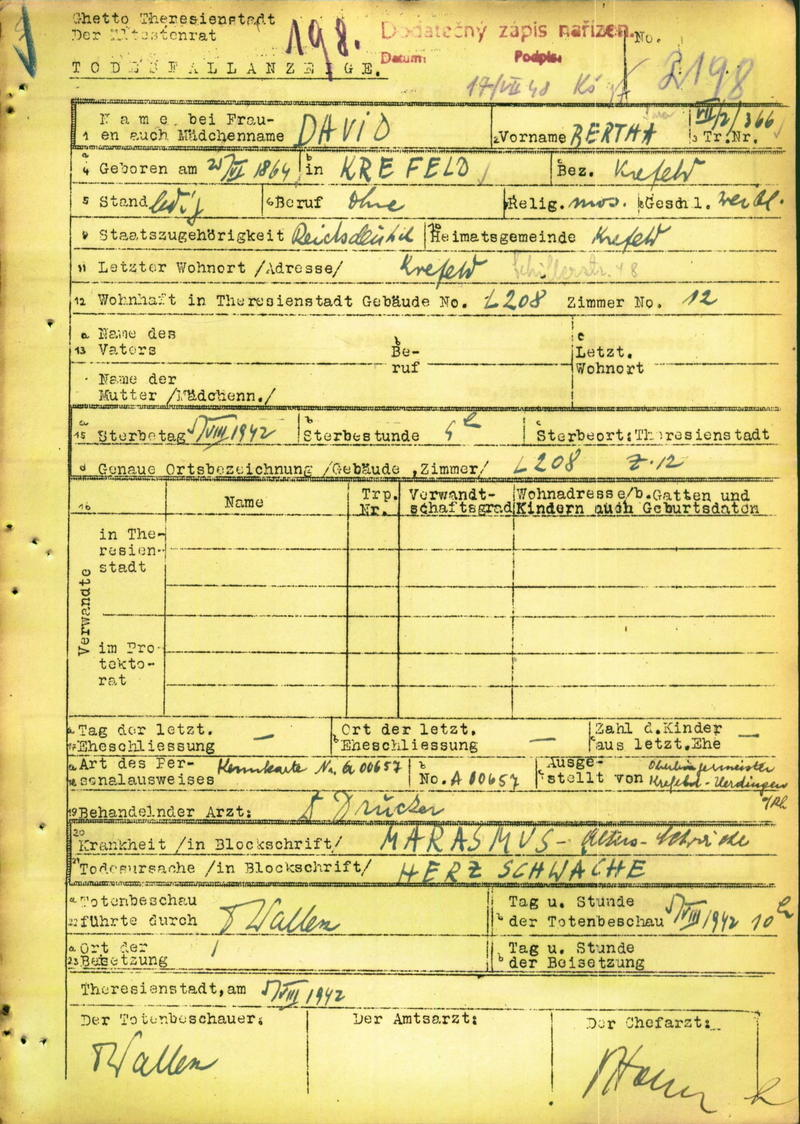 Ghetto Theresienstadt
Der Ältestenrat
198.
Dodatečný zápis nařízen.
Datum: Podpis:
17/VII 48
No.
2198
TODESFALLANZEIGE.
1 Name, bei Frau-
en auch Mädchenname DAVID 2 Vorname BERTHA 3 Tr.Nr. VII/2/366
a 4 Geboren am /VI 1864 b in KREFELD c Bez. Krefeld
5 Stand ledig 6 Beruf Ohne 7 Relig. mos. 8 Geschl. weibl.
9 Staatszugehörigkeit Reichsdeutsch 10 Heimatsgemeinde Krefeld
11 Letzter Wohnort /Adresse/ Krefeld Schillerstr. 48
12 Wohnhaft in Theresienstadt Gebäude No. L208 Zimmer No. 12
a 13 Name des
Vaters
b Be-
ruf
c Letzt.
Wohnort
Name der
Mutter /Mädchenn./
a 15 Sterbetag 5/VIII 1942 b Sterbestunde 5h c Sterbeort: Theresienstadt
d Genaue Ortsbezeichnung /Gebäude, Zimmer/ L208 Z.12
16 Name Trp.
Nr. Verwandt-
schaftsgrad Wohnadresse/b. Gatten und
Kindern auch Geburtsdaten
Verwandte
in The-
resien-
stadt
im Pro-
tekto-
rat
a 17 Tag der letzt.
Eheschliessung —
b Ort der letzt.
Eheschliessung —
Zahl d. Kinder
aus letzt. Ehe —
a 18 Art des Per-
sonalausweises Kennkarte Nr. A 00657
b No. A 00657
c Ausge-
stellt von Oberbürgermeister
Krefeld-Uerdingen
a/Rh.
19 Behandelnder Arzt: Dr Drucker
20 Krankheit /in Blockschrift/ MARASMUS - Alters-Schwäche
21 Todesursache /in Blockschrift/ HERZSCHWÄCHE
a 22 Totenbeschau
führte durch Wallen
b Tag u. Stunde
der Totenbeschau 5/VIII 1942 10h
a 23 Ort der
Beisetzung /
b Tag u. Stunde
der Beisetzung
Theresienstadt, am 5/VIII 1942
Der Totenbeschauer: Der Amtsarzt: Der Chefarzt:
Wallen